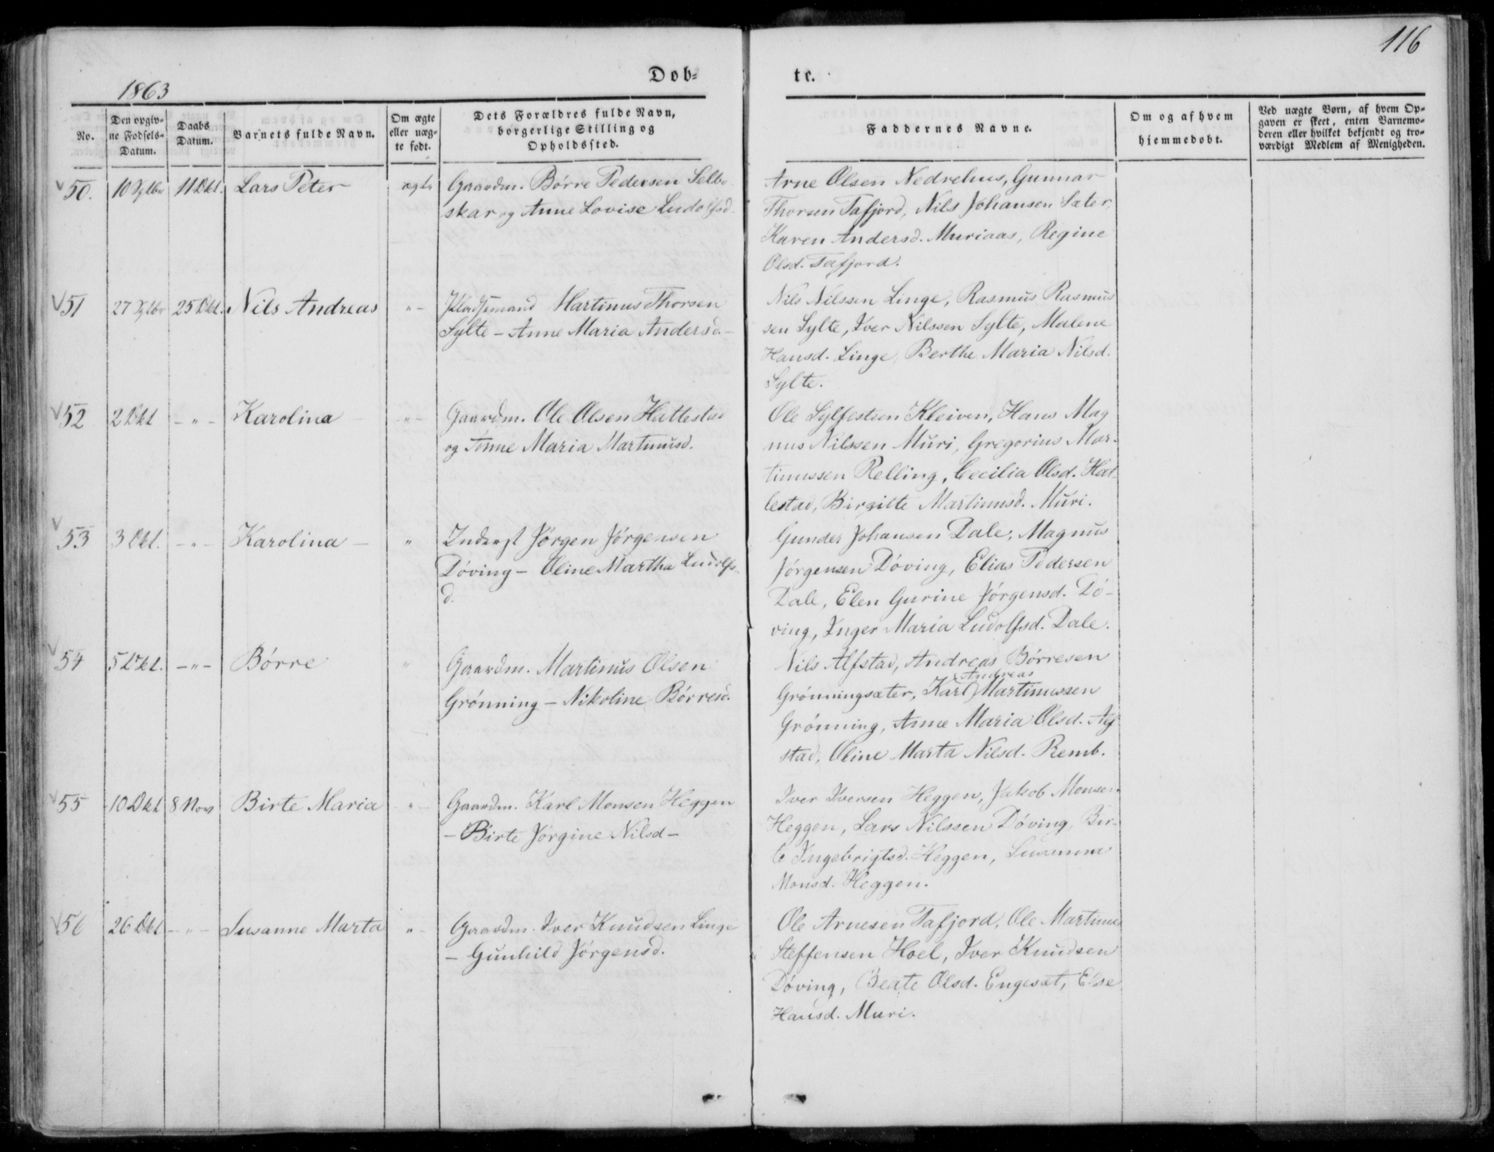 116
1863
Dob-
te.
No.
Den opgiv-
ne Fødsels-
Datum.
Daabs
Datum.
Barnets fulde Navn.
Om ægte
eller uæg-
te født.
Dets Forældres fulde Navn,
borgerlige Stilling og
Opholdssted.
Faddernes Navne.
Om og af hvem
hjemmedøbt.
Ved uægte Børn, af hvem Op-
gaven er skeet, enten Barnemo-
deren eller hvilket bekjendt og tro-
værdigt Medlem af Menigheden.
50. 10 11 Okt. Lars Peter ægte Gaardm. Børre Pedersen Selbo-
skar og Anne Lovise Ludolfsd.
Arne Olsen Nedrehus, Gunnar
Thorsen Tafjord, Nils Johansen Sæter,
Karen Andersd. Muriaas, Regine
Olsd. Tafjord.
51 27 25 Okt. Nils Andreas " Pladsmand Martinus Thorsen
Sylte - Anne Maria Andersd-
Nils Nilssen Linge, Rasmus Rasmus
sen Sylte, Iver Nilssen Sylte, Malene
Hansd. Linge, Berthe Maria Nilsd.
Sylte.
52 2 Okt - " - Karolina " Gaardm. Ole Olsen Hattestad
og Anne Maria Martinusd.
Ole Sylfestsen Kleiven, Hans Mag
nus Nilssen Muri, Gregorius Mar-
tinussen Relling, Cecilia Olsd. Hat
testad, Birgitte Martinusd. Muri.
53 3 Okt. - " - Karolina - " Inderst Jørgen Jørgensen
Døving - Oline Martha Ludolfs-
d.
Gunder Johansen Dale, Magnus
Jørgensen Døving, Elias Pedersen
Dale, Elen Gurine Jørgensd. Dø-
ving, Inger Maria Ludolfsd. Dale.
54 5 Okt. - " - Børre " Gaardm. Martinus Olsen
Grønning - Nikoline Børresd.
Nils Alfstad, Andreas Børresen
Andreas
Grønningsæter, Karl Martinussen
Grønning, Anne Maria Olsd. Alf
stad, Oline Marta Nilsd. Remb.
55 10 Okt 8 Nov Birte Maria " Gaardm. Karl Monsen Heggen
- Birte Jørgine Nilsd -
Iver Iversen Heggen, Jakob Monsen
Heggen, Lars Nilssen Døving, Bir-
te Ingebrigtsd. Heggen, Susanna
Monsd. Heggen.
56 26 Okt - " - Susanne Marta " Gaardm. Iver Knudsen Linge
- Gunhild Jørgensd.
Ole Arnesen Tafjord, Ole Martinus
Steffensen Hoel, Iver Knudsen
Døving, Beate Olsd. Engeset, Else
Hansd. Muri.